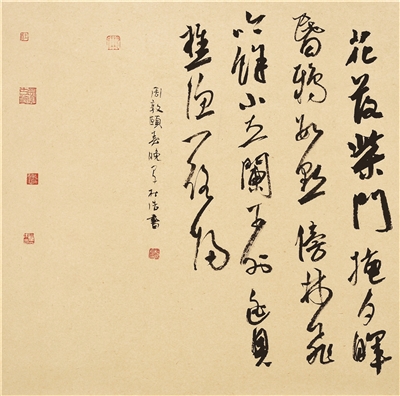 花落柴門掩夕暉
昏鴉數點傍林飛
吟餘小立闌干外遥見
樵漁一路歸
周敦頤春晚書